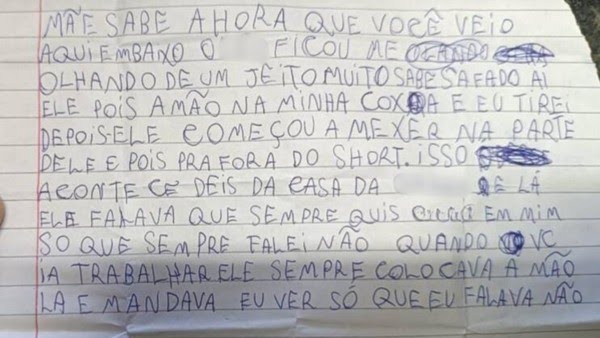 MÃE SABE AHORA QUE VOCÊ VEIO
AQUI EMBAIXO O FICOU ME
OLHANDO DE UM JEITO MUITO SABE SAFADO AI
ELE POIS A MÃO NA MINHA COXA E EU TIREI
DEPOIS ELE COMEÇOU A MEXER NA PARTE
DELE E POIS PRA FORA DO SHORT. ISSO
ACONTECE DEIS DA CASA DA E LÁ
ELE FALAVA QUE SEMPRE QUIS EM MIM
SO QUE SEMPRE FALEI NÃO QUANDO VC
IA TRABALHAR ELE SEMPRE COLOCAVA A MÃO
LA E MANDAVA EU VER SÓ QUE EU FALAVA NÃO